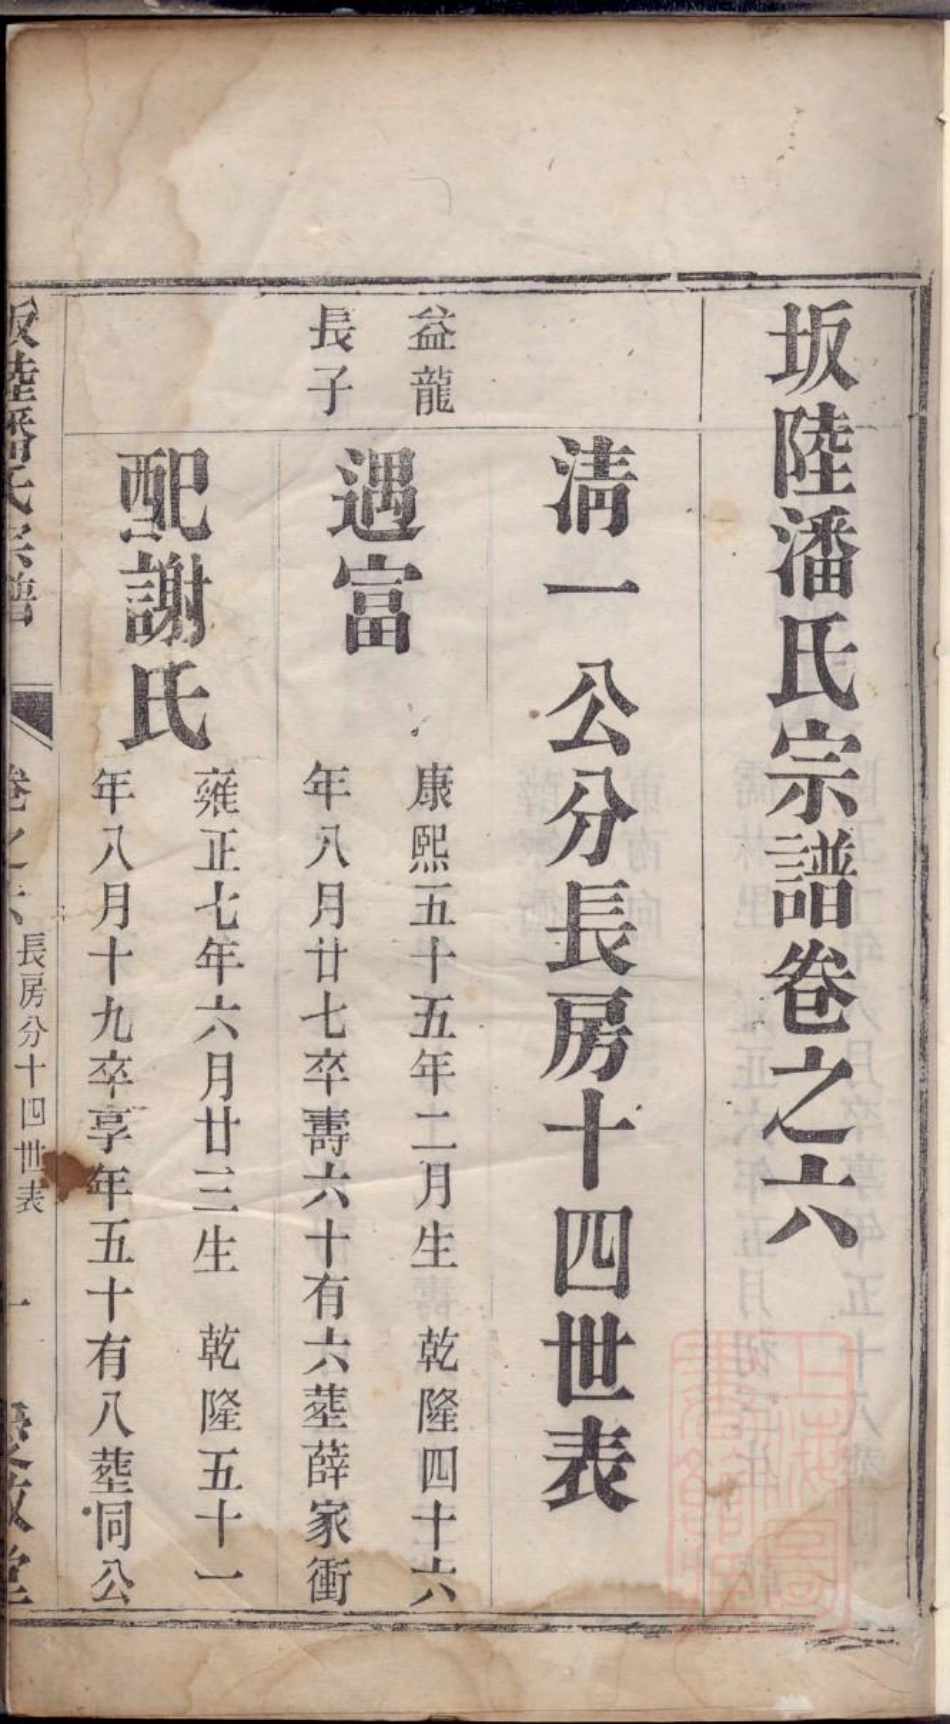 坂陸潘氏宗譜卷之六
淸一公分長房十四世表
益龍
長子
遇富
康熙五十五年二月生 乾隆四十六
年八月廿七卒壽六十有六塟薛家衝
配謝氏
雍正七年六月廿三生 乾隆五十一
年八月十九卒享年五十有八塟同公
坂陸潘氏宗譜 卷之六 長房分十四世表 一